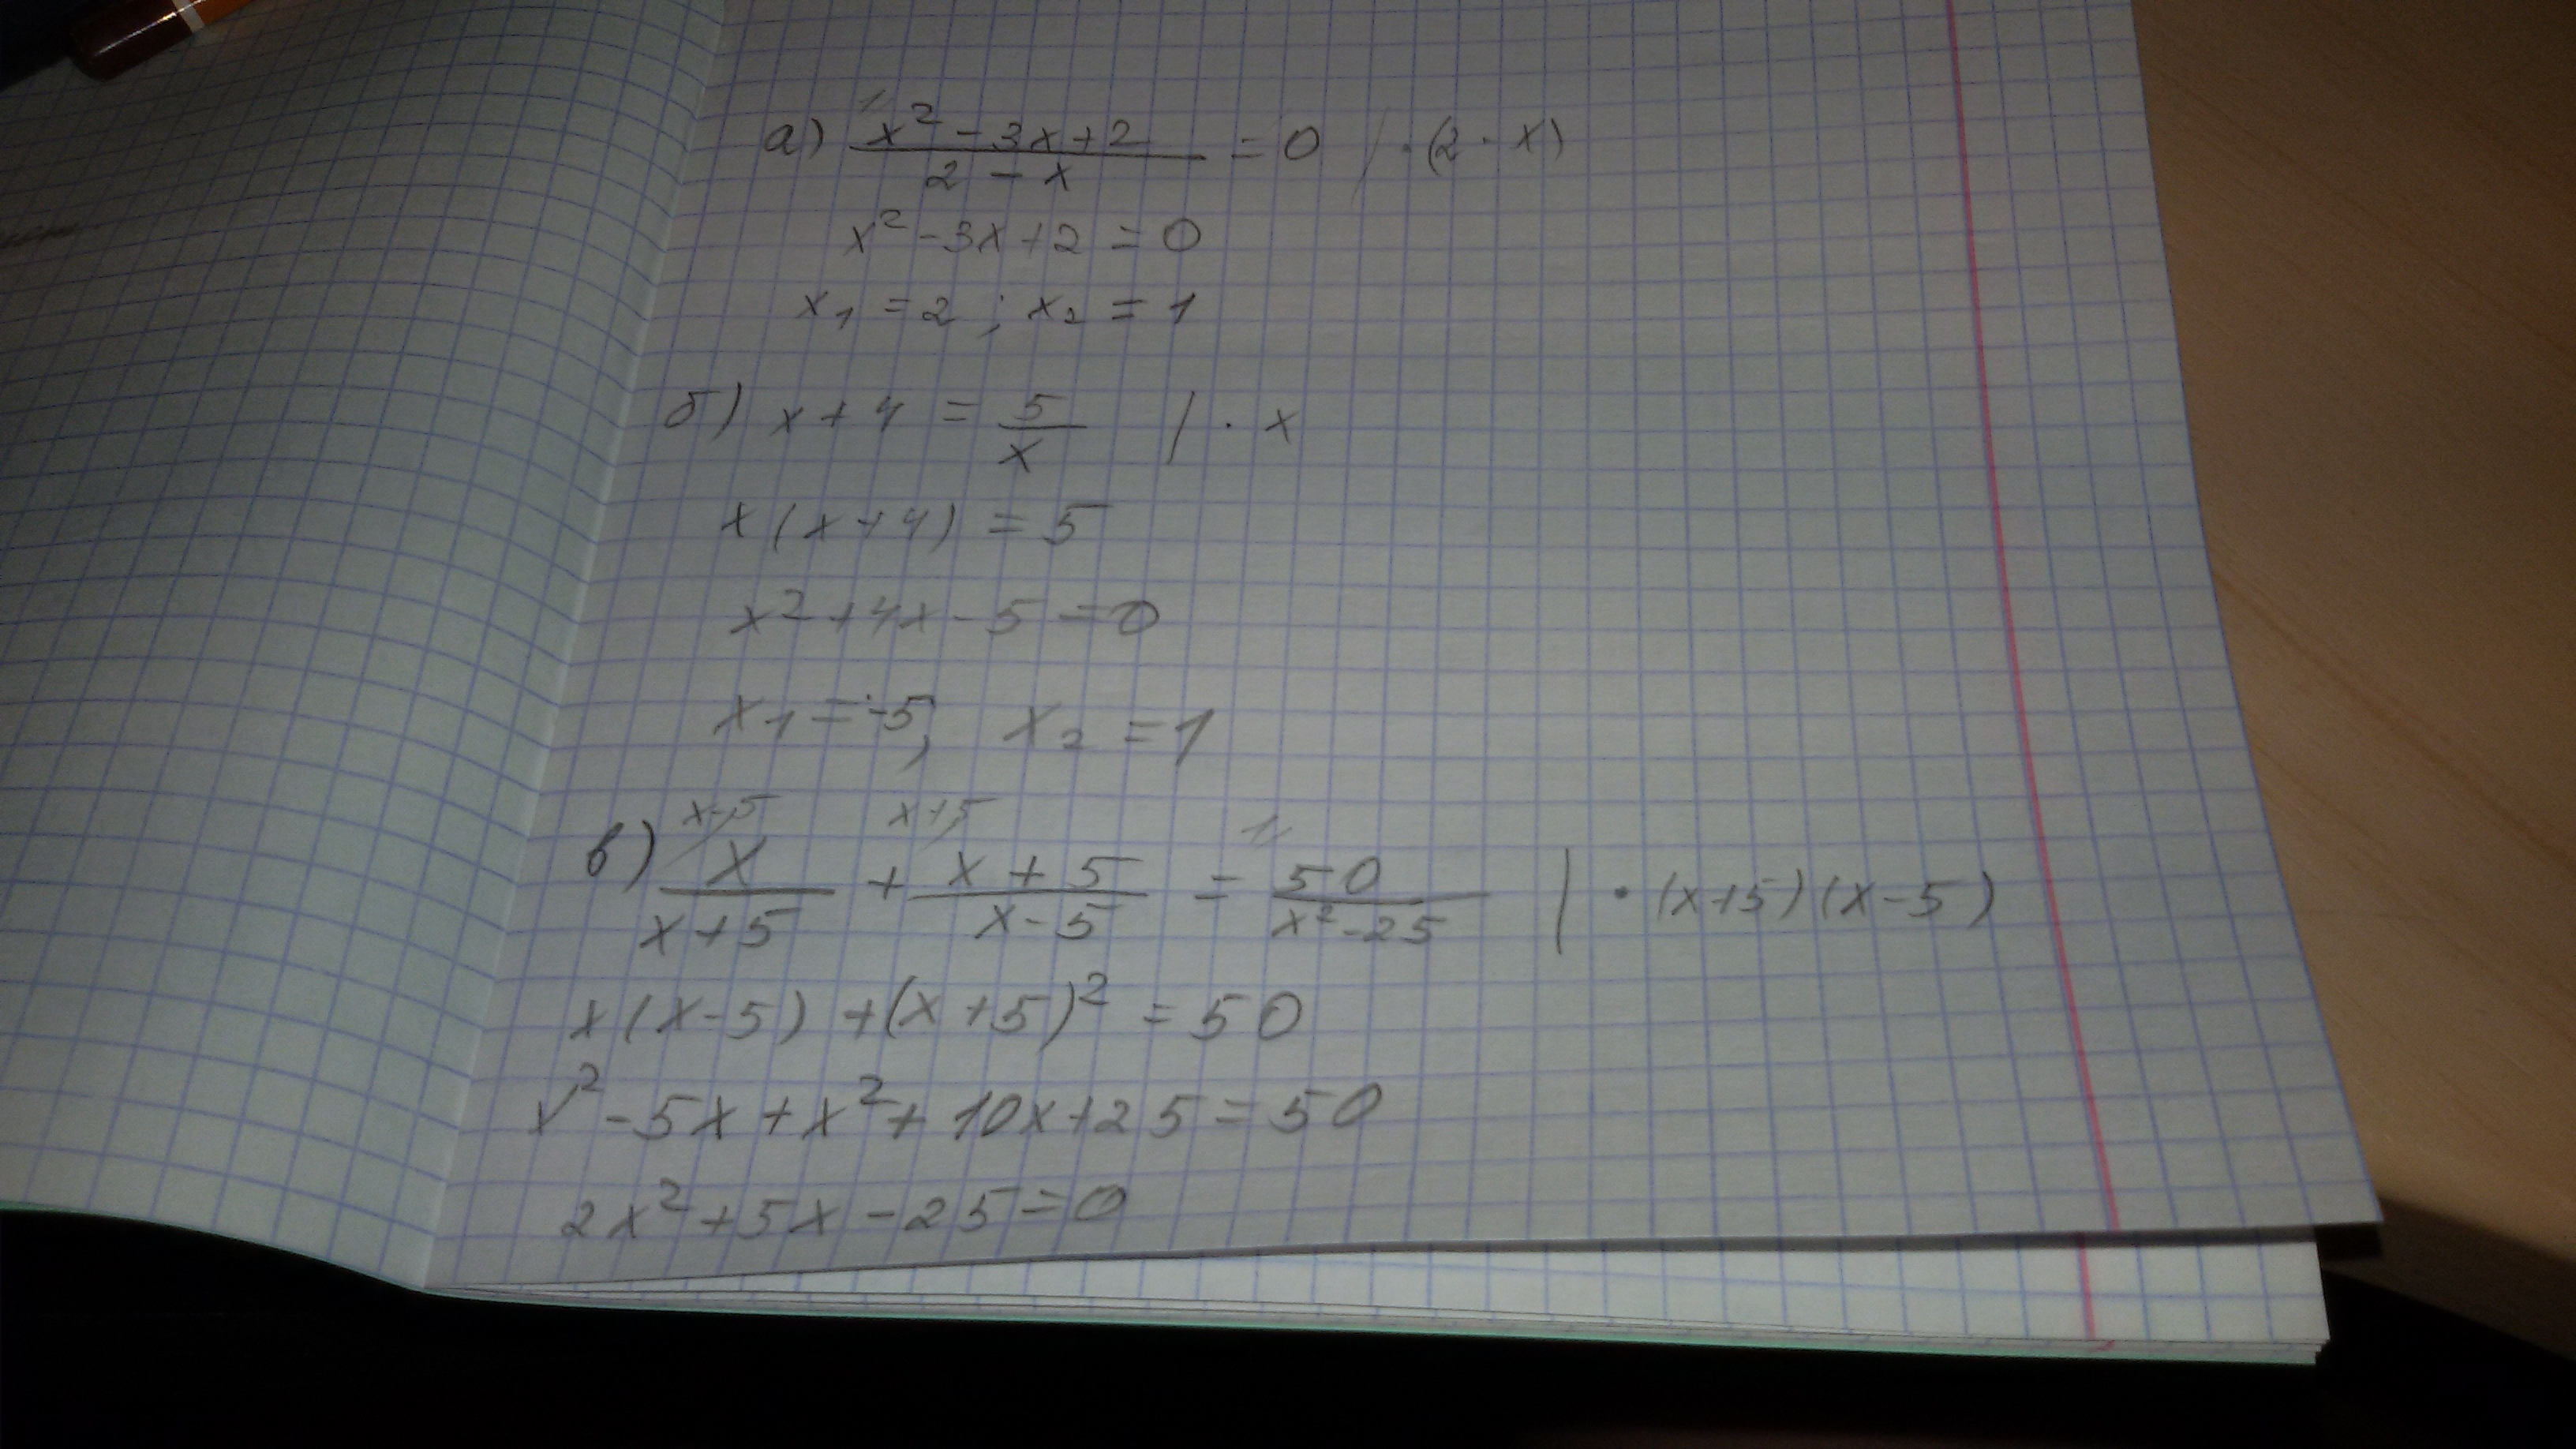 а) (x² - 3x + 2)/(2 - x) = 0 | · (2 - x)
x² - 3x + 2 = 0
x₁ = 2 ; x₂ = 1
б) x + 4 = 5/x | · x
x(x + 4) = 5
x² + 4x - 5 = 0
x₁ = -5; x₂ = 1
x-5 x+5 1
в) x/(x + 5) + (x + 5)/(x - 5) = 50/(x² - 25) | · (x+5)(x-5)
x(x-5) + (x+5)² = 50
x² - 5x + x² + 10x + 25 = 50
2x² + 5x - 25 = 0